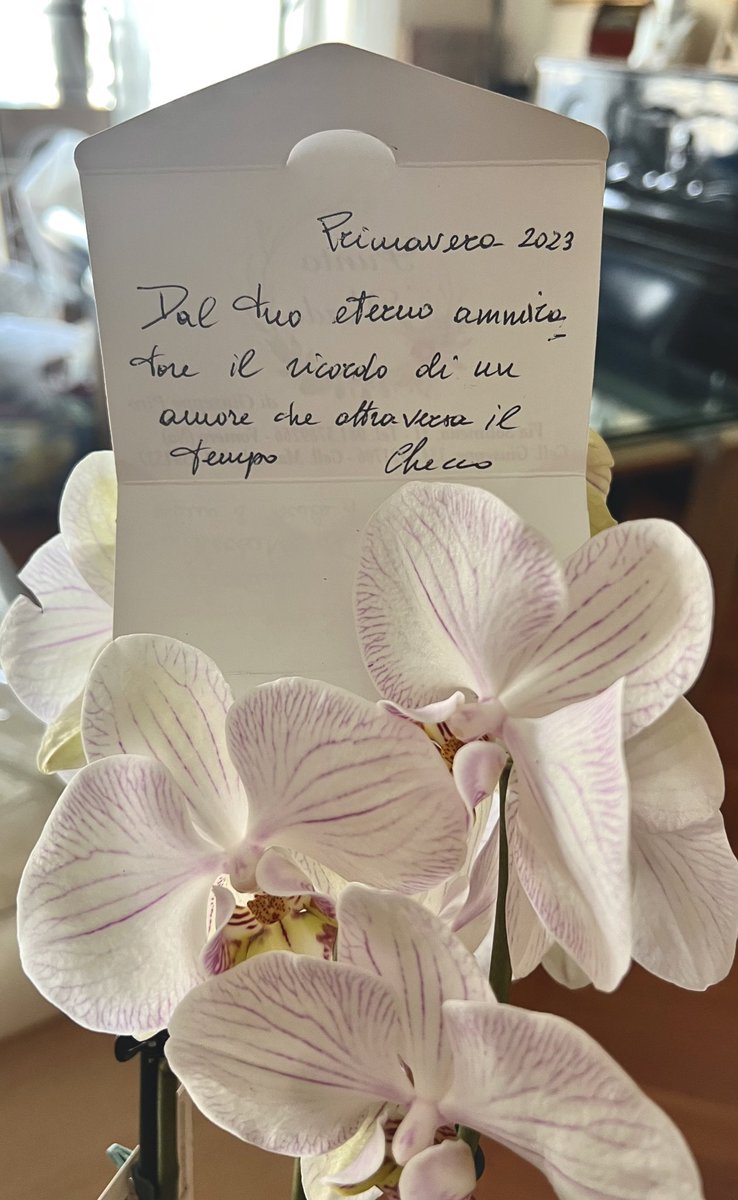 Primavera 2023
Dal tuo eterno ammira
tore il ricordo di un
amore che attraversa il
tempo Checco